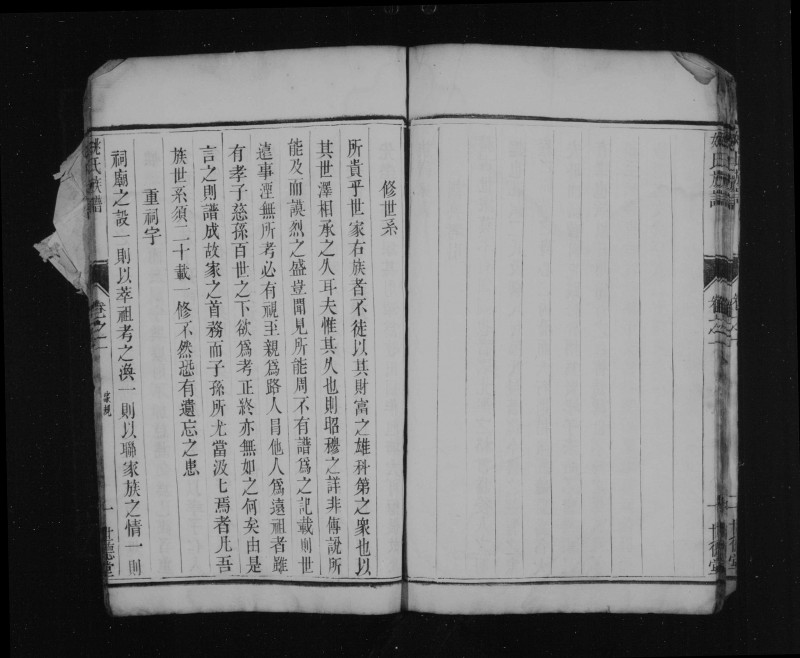 修世系
所貴乎世家右族者不徒以其財富之雄科第之衆也以
其世澤相承之久耳夫惟其久也則昭穆之詳非傳說所
能及而謨烈之盛豈聞見所能周不有譜爲之記載則世
遠事湮無所考必有視至親爲路人冐他人爲遠祖者雖
有孝子慈孫百世之下欲爲考正終亦無如之何矣由是
言之則譜成故家之首務而子孫所尤當汲七焉者凡吾
族世系須二十載一修不然恐有遺忘之患
重祠宇
祠廟之設一則以萃祖考之渙一則以聯家族之情一則
姚氏族譜
卷之一
家規
一
世德堂